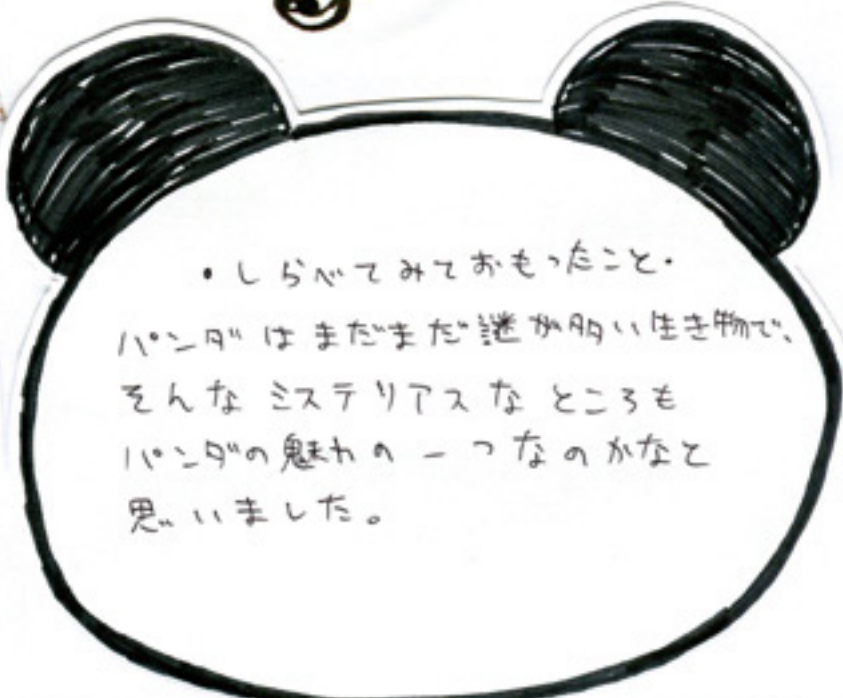 ・しらべてみておもったこと・
パンダはまだまだ謎が多い生き物で、
そんなミステリアスなところも
パンダの魅力の一つなのかなと
思いました。